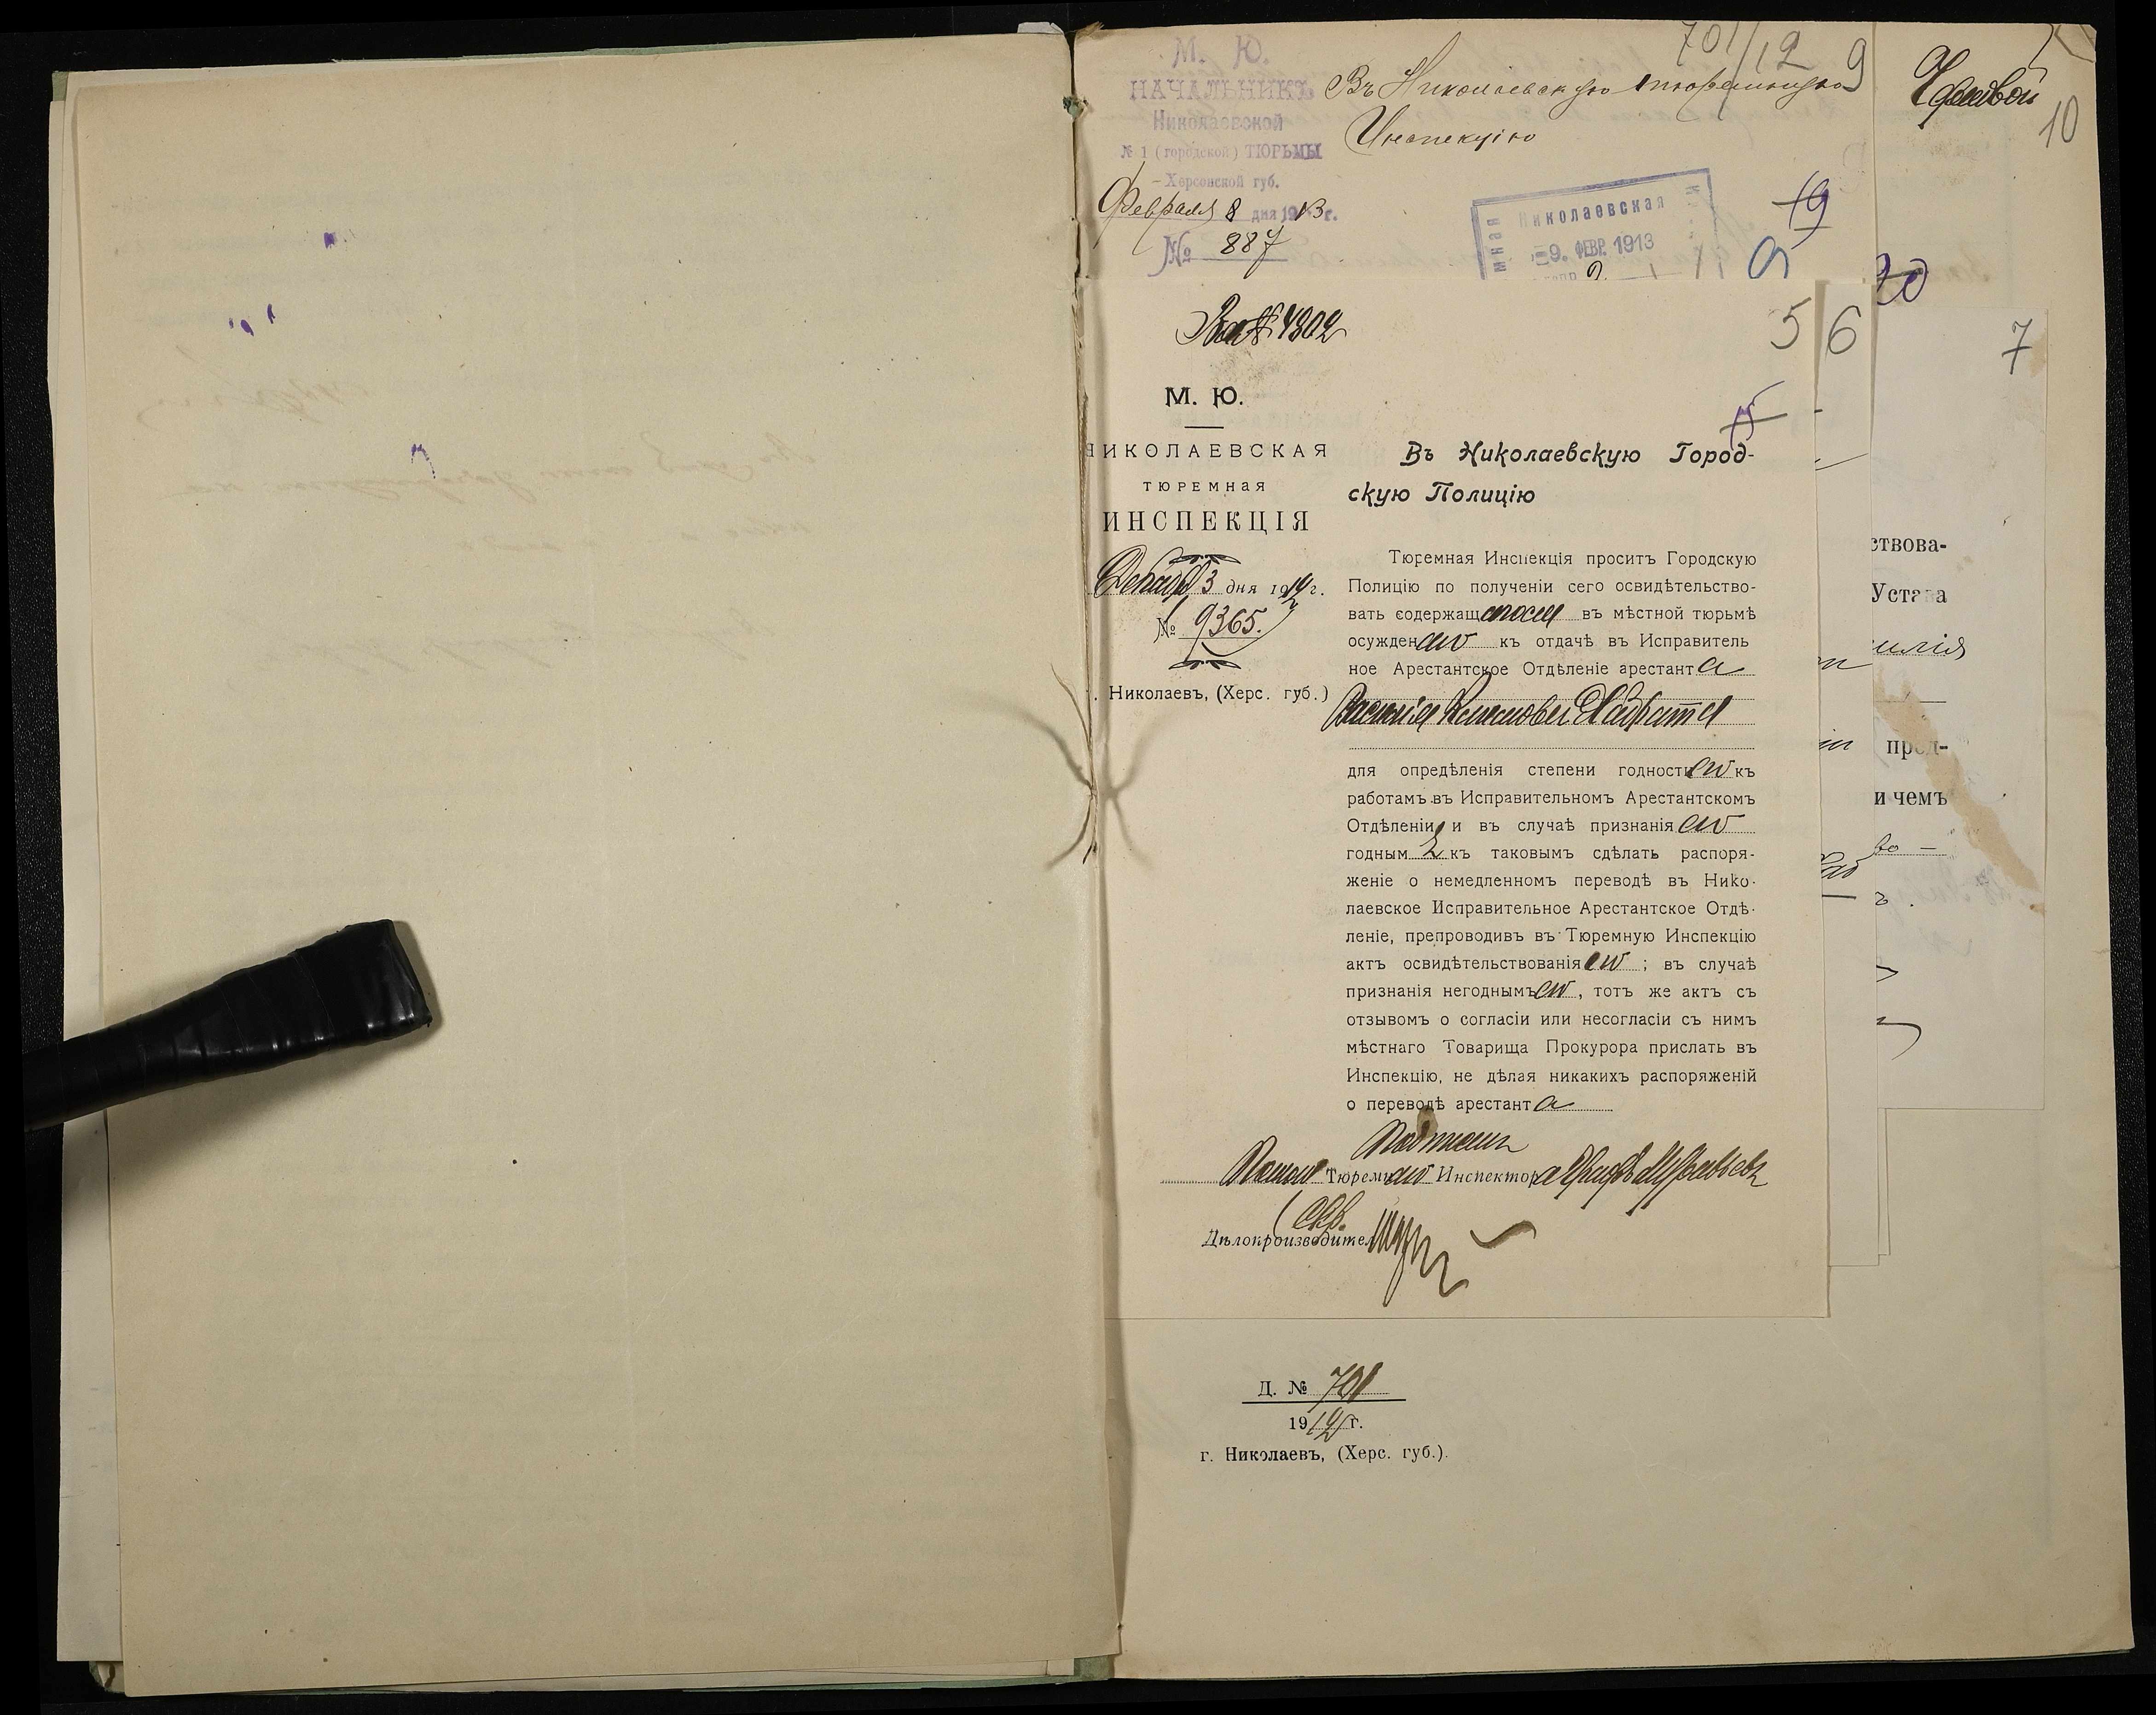 701/12
9
М. Ю.
НАЧАЛЬНИКЪ
Николаевской
№ 1 (городской) ТЮРЬМЫ
Херсонской губ.
Февраля 8 дня 1913 г.
№ 887
Въ Николаевскую тюремную
Инспекцію
Николаевская
9. ФЕВР. 1913
19
9
10
20
7
5
6
За № 4302
М. Ю.
НИКОЛАЕВСКАЯ
ТЮРЕМНАЯ
ИНСПЕКЦІЯ
Декабря 3 дня 1912 г.
№ 9365.
. Николаевъ, (Херс. губ.)
15
Въ Николаевскую Город-
скую Полицію
Тюремная Инспекція проситъ Городскую
Полицію по полученіи сего освидѣтельство-
вать содержащагося въ мѣстной тюрьмѣ
осужденаго къ отдачѣ въ Исправитель
ное Арестантское Отдѣленіе арестанта
Василія
для опредѣленія степени годности его къ
работамъ въ Исправительномъ Арестантскомъ
Отдѣленіи и въ случаѣ признанія его
годнымъ къ таковымъ сдѣлать распоря-
женіе о немедленномъ переводѣ въ Нико-
лаевское Исправительное Арестантское Отдѣ-
леніе, препроводивъ въ Тюремную Инспекцію
актъ освидѣтельствованія его ; въ случаѣ
признанія негоднымъ его, тотъ же актъ съ
отзывомъ о согласіи или несогласіи съ нимъ
мѣстнаго Товарища Прокурора прислать въ
Инспекцію, не дѣлая никакихъ распоряженій
о переводѣ арестанта
Подписалъ
Помощ Тюремнаго Инспектора Графъ Муравьевъ
Скр.
Дѣлопроизводитель
Д. № 701
1912 г.
г. Николаевъ, (Херс. губ.).
ствова-
Устава
илія
пред-
и чемъ